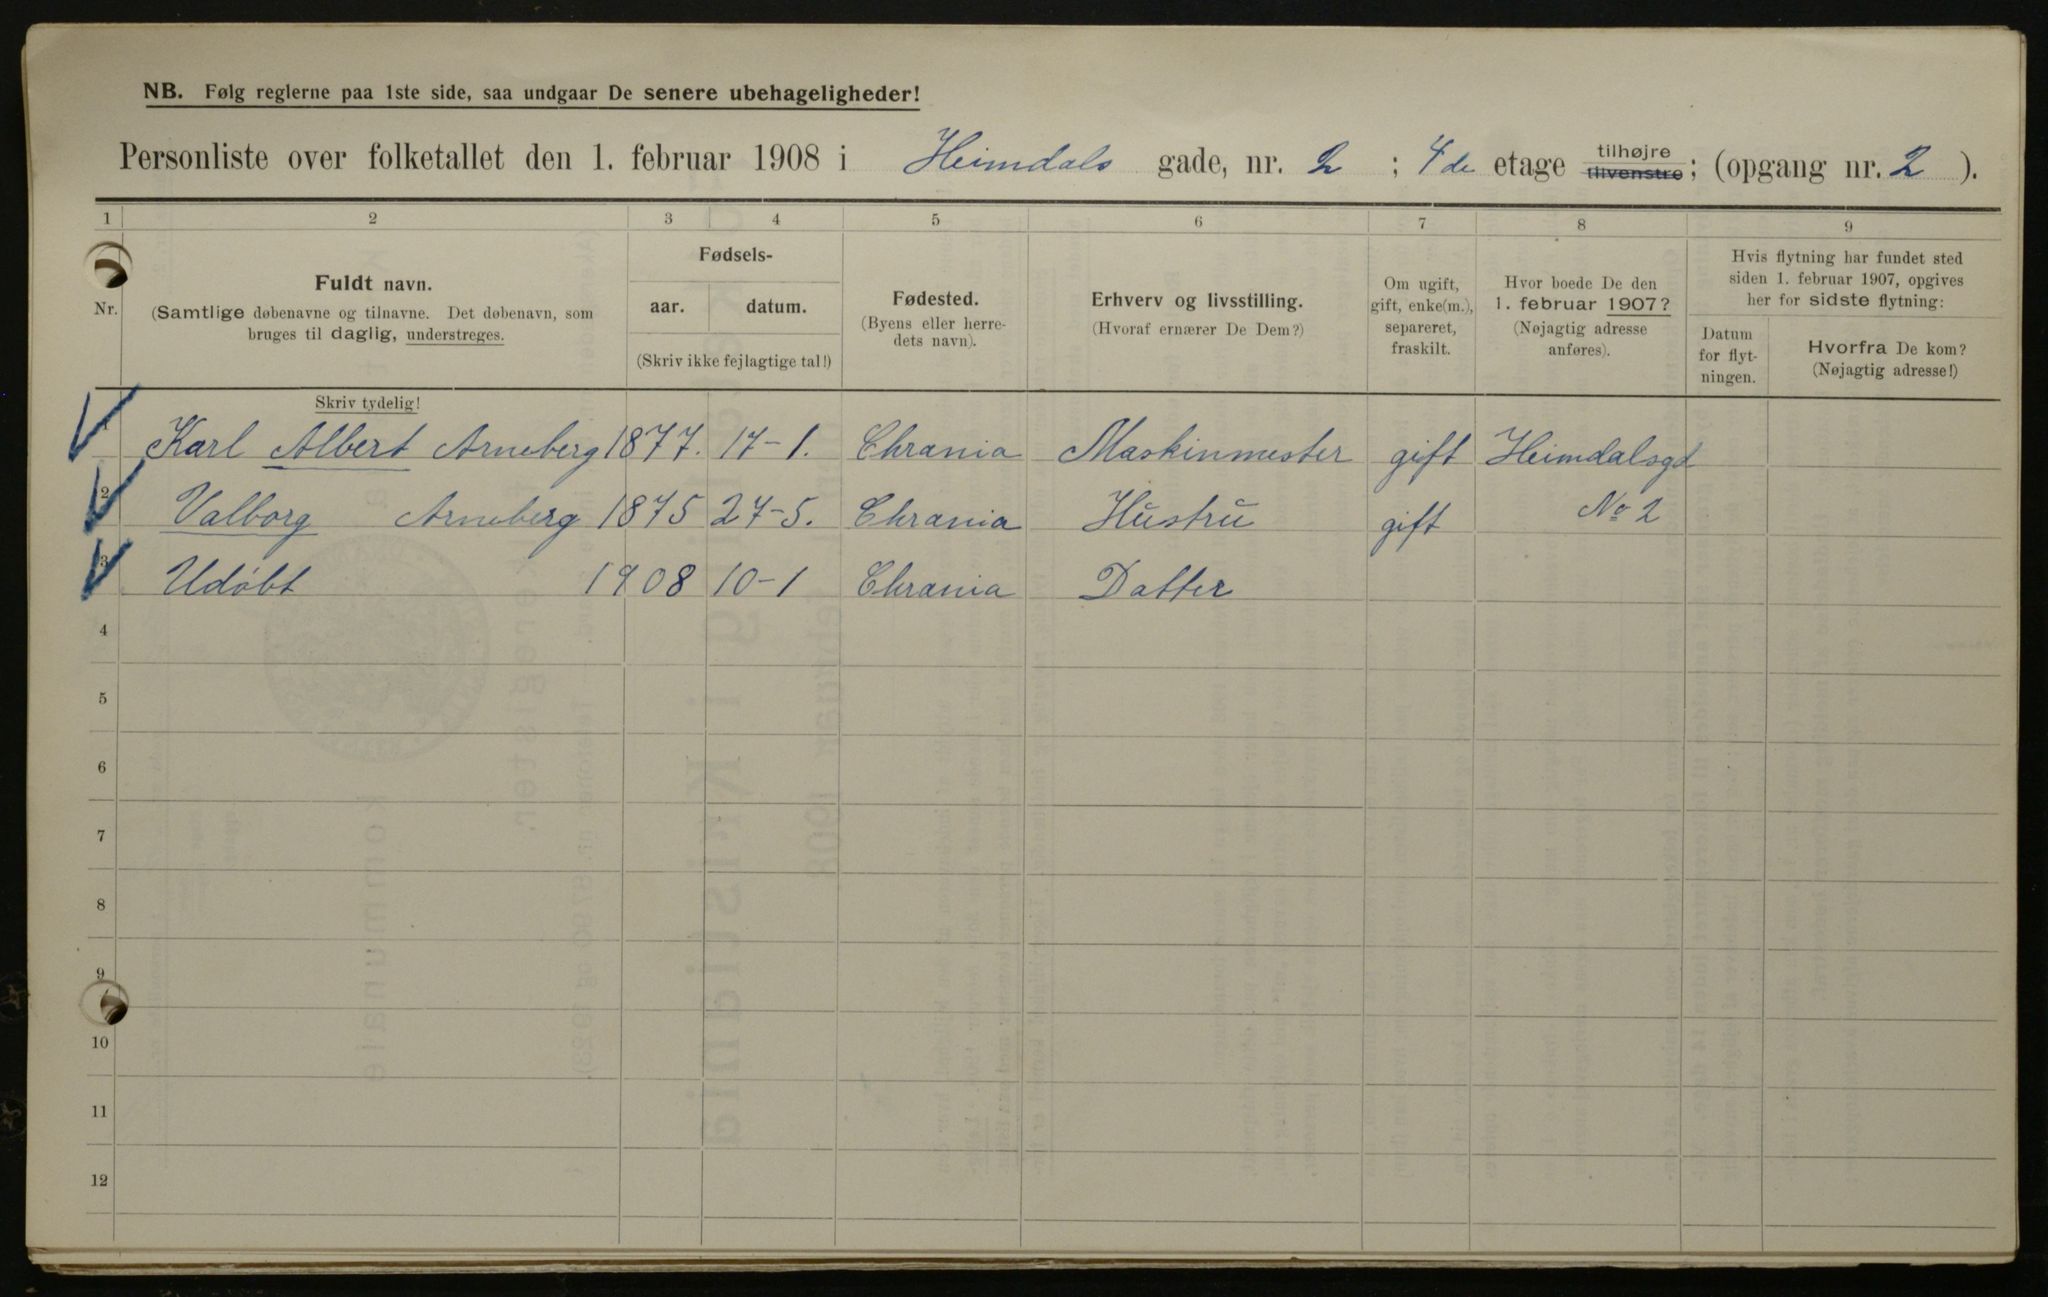 NB. Følg reglerne paa 1ste side, saa undgaar De senere ubehageligheder!
Personliste over folketallet den 1. februar 1908 i Heimdals gade, nr. 2 ; 4de etage tilhøjre tilvenstre ; (opgang nr. 2 ).
1 2 3 4 5 6 7 8 9
Nr.
Fuldt navn.
(Samtlige døbenavne og tilnavne. Det døbenavn, som
bruges til daglig, understreges.
Fødsels-
aar. datum.
(Skriv ikke fejlagtige tal!)
Fødested.
(Byens eller herre-
dets navn).
Erhverv og livsstilling.
(Hvoraf ernærer De Dem?)
Om ugift,
gift, enke(m.),
separeret,
fraskilt.
Hvor boede De den
1. februar 1907?
(Nøjagtig adresse
anføres).
Hvis flytning har fundet sted
siden 1. februar 1907, opgives
her for sidste flytning:
Datum
for flyt-
ningen.
Hvorfra De kom?
(Nøjagtig adresse!)
Skriv tydelig!
1 Karl Albert Arneberg 1877. 17-1. Chrania Maskinmester gift Heimdalsgd
2 Valborg Arneberg 1875 27-5. Chrania Hustru gift No 2
3 Udøbt 1908 10-1 Chrania Datter
4
5
6
7
8
9
10
11
12